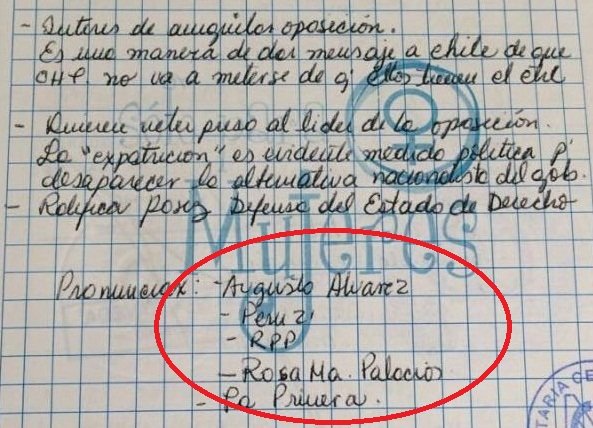 - Interes de aniquilar oposición.
Es una manera de dar mensaje a chile de que
no va a meterse de q' Ellos tienen el
- Quieren meter preso al lider de la oposición.
La "expatrición" es evidente medida política p'
desaparecer la alternativa nacionalista del gob.
- Ratifica Defensa del Estado de Derecho
Mujeres
- Augusto Alvarez
- Peru 21
- RPP
- Rosa Ma. Palacios
- La Primera.
TARIA GE